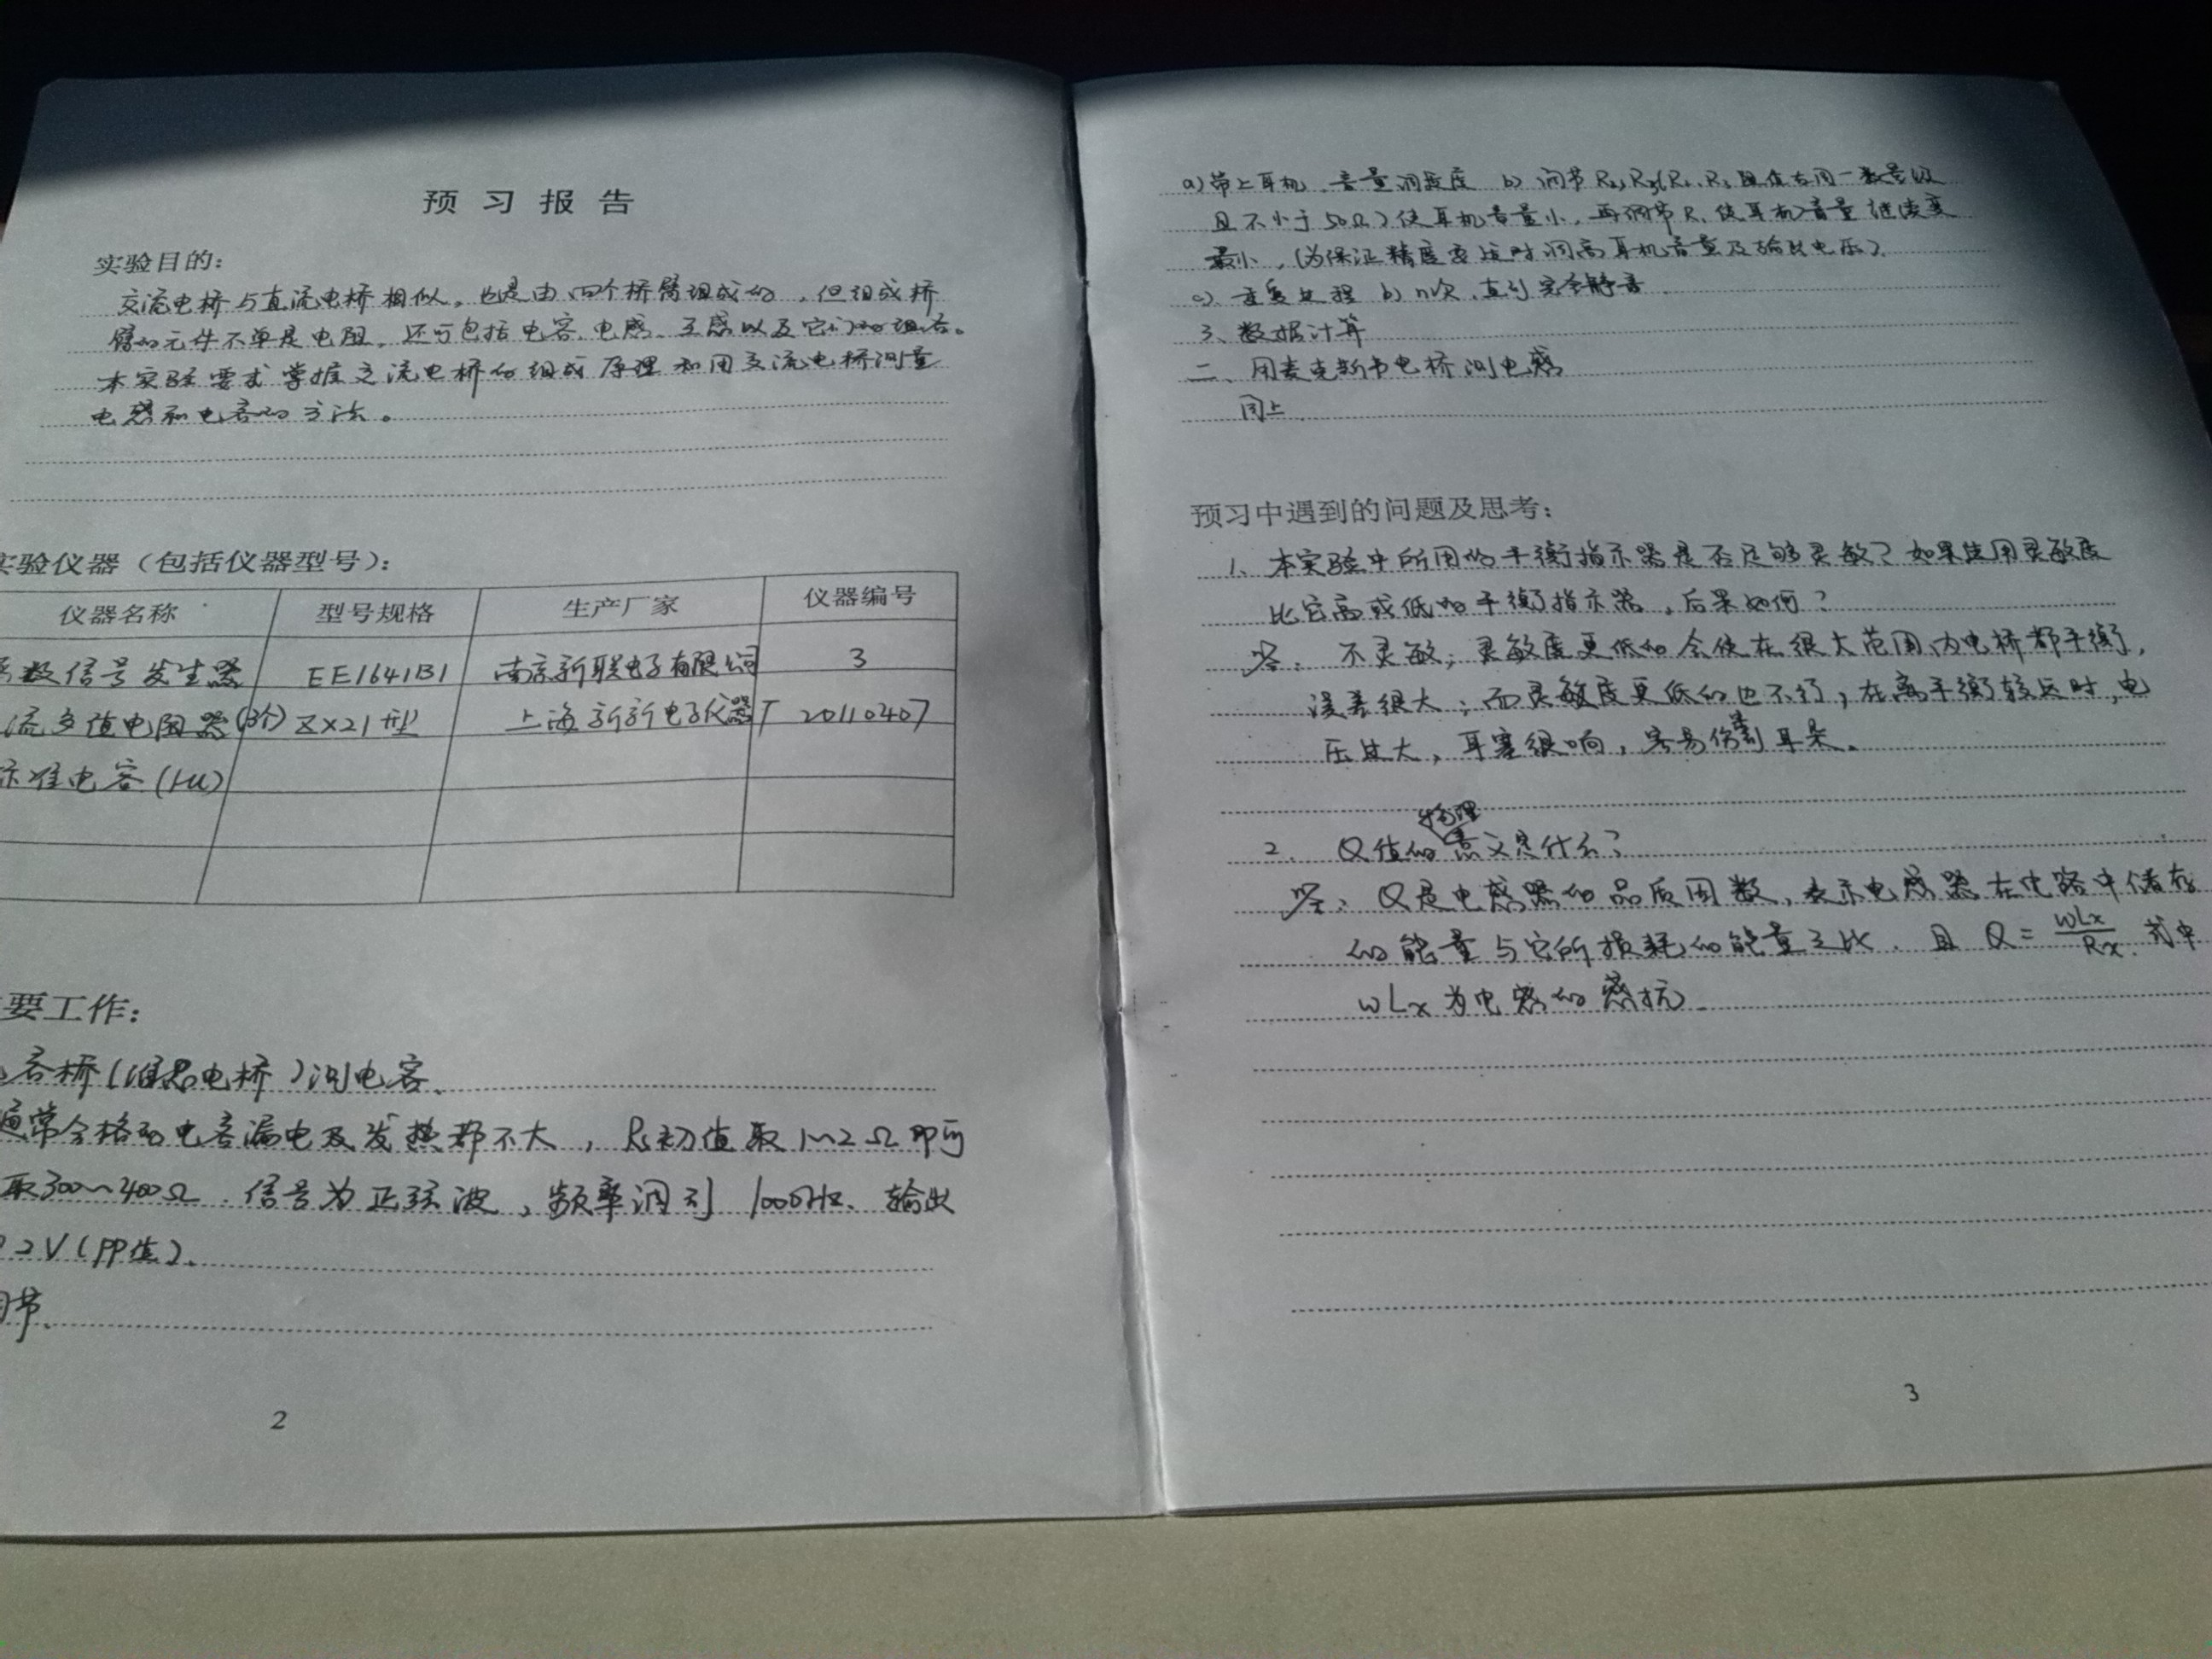 预习报告
实验目的:
交流电桥与直流电桥相似。也是由四个桥臂组成的,但组成桥
臂的元件不单是电阻。还可包括电容、电感、互感以及它们的组合。
本实验要求掌握交流电桥的组成原理和用交流电桥测量
电感和电容的方法。
实验仪器(包括仪器型号):
仪器名称 型号规格 生产厂家 仪器编号
数信号发生器 EE1641B1 南京新联电子有限公司 3
流多值电阻器(3个) ZX21型 上海新新电子仪器厂 20110407
标准电容(1u)
要工作:
容桥(维恩电桥)测电容.
通常合格的电容漏电及发热都不大,Rs初值取1~2Ω即可
取300~400Ω.信号为正弦波,频率调到1000Hz.输出
2V(PP值).
节.
2
a)带上耳机.音量调适度 b)调节R2,R3(R2、R3阻值在同一数量级
且不小于50Ω)使耳机音量小,再调节Rs使耳机音量继续变
最小,(为保证精度要适时调高耳机音量及输出电压).
c)、重复过程b)n次,直到完全静音.
3、数据计算
二、用麦克斯韦电桥测电感
同上.
预习中遇到的问题及思考:
1、本实验中所用的平衡指示器是否足够灵敏?如果使用灵敏度
比它高或低的平衡指示器,后果如何?
答:不灵敏;灵敏度更低的会使在很大范围内电桥都平衡,
误差很大;而灵敏度更低的也不行,在离平衡较远时,电
压过大,耳塞很响,容易伤害到耳朵。
2. Q值的物理意义是什么?
答:Q是电感器的品质因数,表示电感器在电路中储存
的能量与它所损耗的能量之比.且 Q=ωLx/Rx.式中
ωLx为电感的感抗.
3